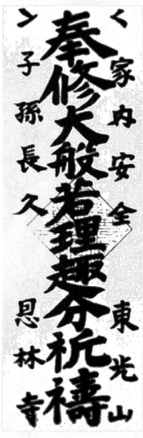 家内安全　東光山
奉修大般若理趣分祈祷
子孫長久　恩林寺